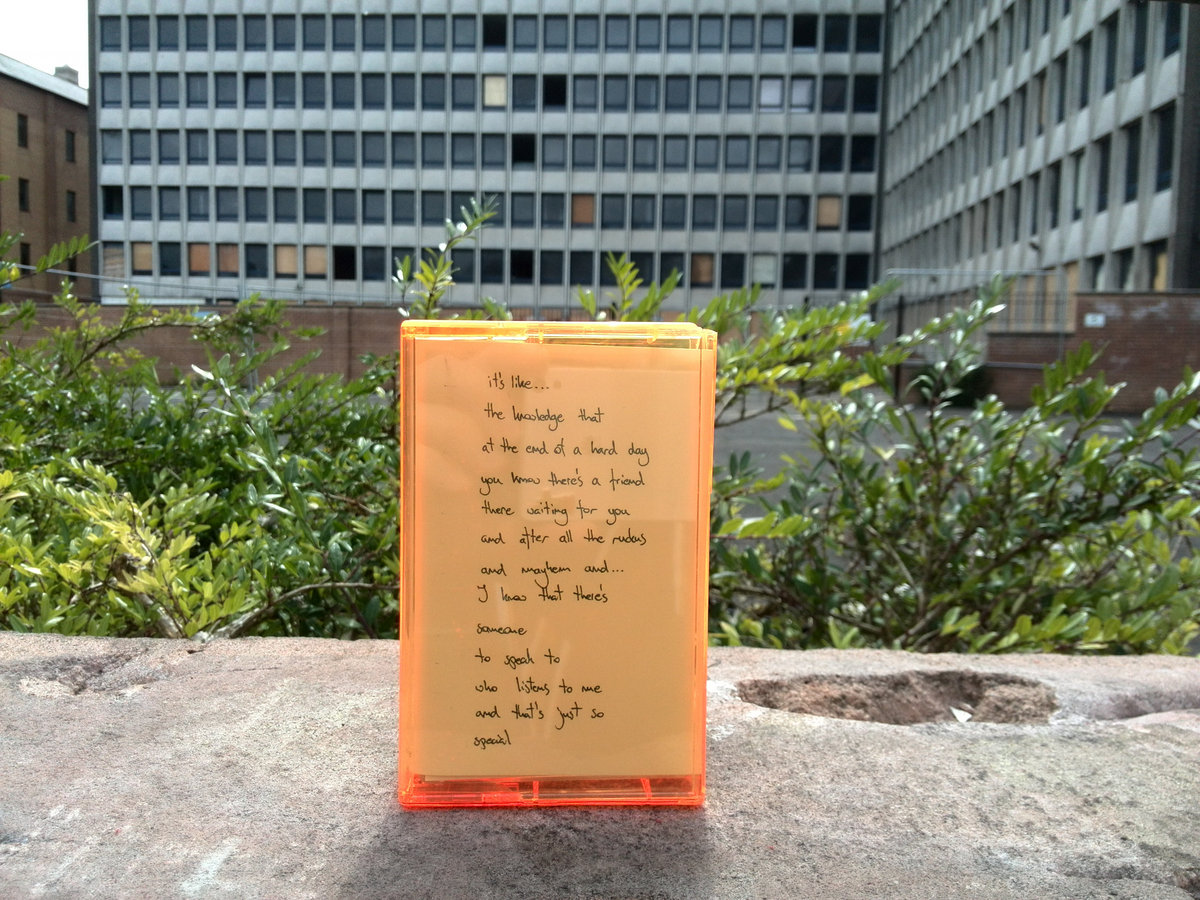 it's like...
the knowledge that
at the end of a hard day
you know there's a friend
there waiting for you
and after all the ruckus
and mayhem and...
I know that there's
someone
to speak to
who listens to me
and that's just so
special